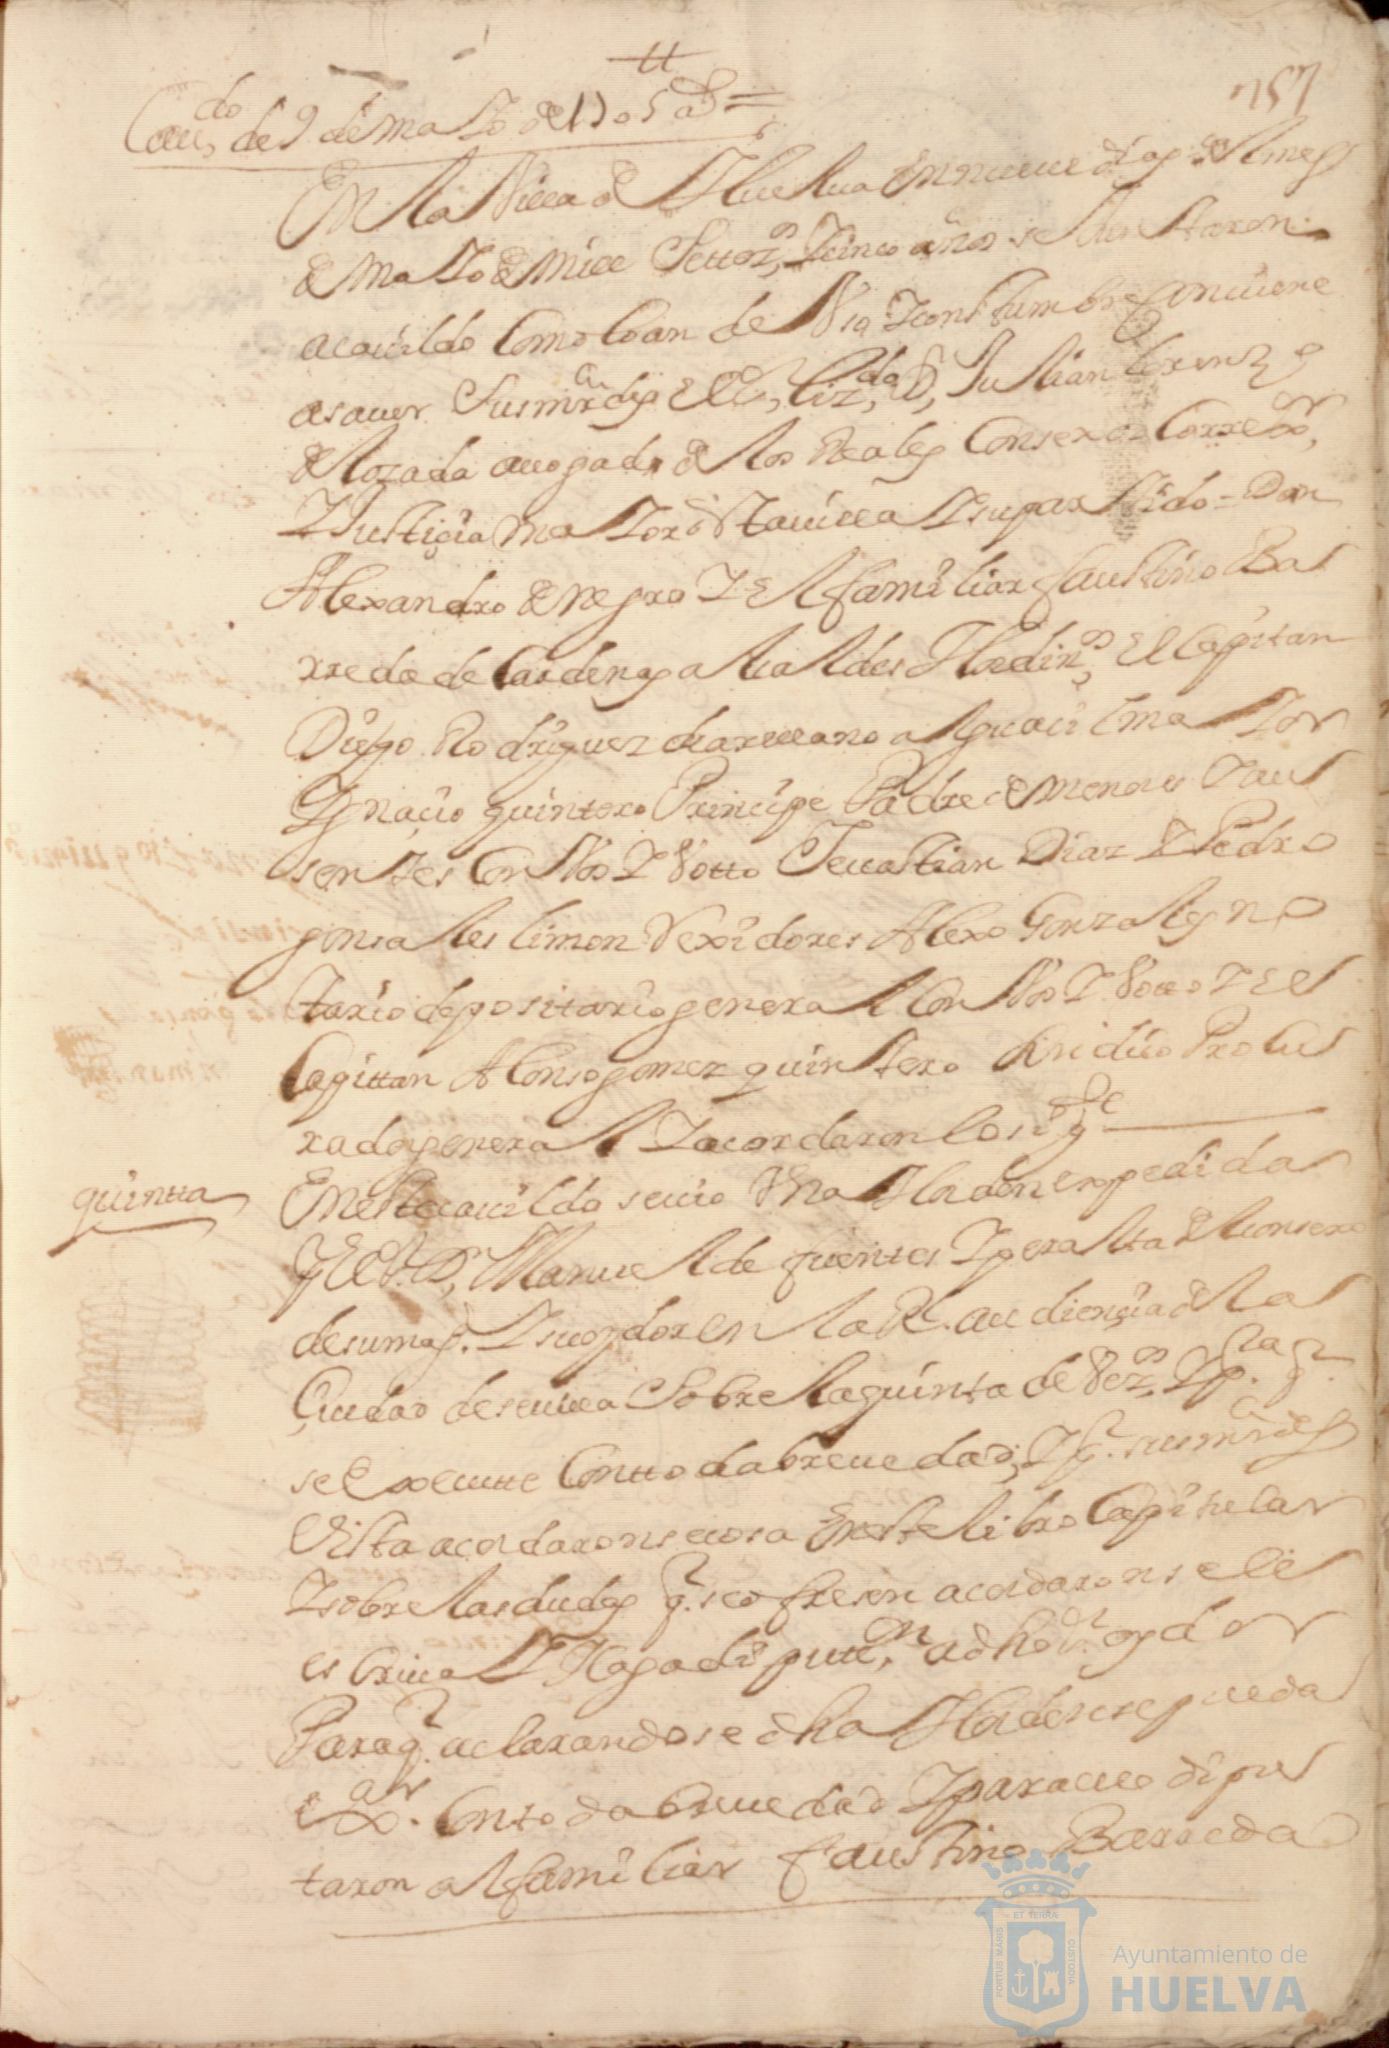 tt
757
Cau,do de 9 de maYo de 1705 as =
En la Villa de Huelua En nueue dias del mes
de maYo de mill Settoz,os Y cinco años se Juntaron
a cauildo Como lo an de Vso Y constumbre Conuiene
asauer Sus mrdes El Liz,do D, Julian Lorenzo
de lozada auogado de los Reales Consexos Correxor,
Y Justiçia maYor desta uilla Y su partido = Don
Alexandro de negro Y El familiar faustino Ba
rreda de Cardenas Alcaldes Hordin,os El Capitan
Diego Rodriguez de arellano alguaçil maYor
Ygnaçio quintero Principe Padre de Menores Y au
sentes Con Vos Y Votto Seuastian Diaz Y Pedro
gonsales limon Rexidores Alexo Gonzales no
tario depositario general Con Vos Y Voto Y El
Capittan Alonso gomez quintero sindico Procu
rador general Y acordaron lo sigte
quintta
En este cauildo se uio Vna Horden expedida
por El Sr. D, Manuel de fuentes Y peralta del Consexo
de su mag. Y su oydor en la Rl. audiençia de la
Çiudad de seuilla Sobre la quinta de Vez,os Y pa. q.
se Execute Con toda breuedad, Y por sus mrdes
Vista acordaron se cosa En este libro Capitular
Y sobre las dudas q. se ofresen acordaron se le
escriua Y Haga diputt,on a dho sr. oydor
Para q. aclarandose dha Horden se pueda
exar. Con toda breuedad Y para ello dipu
taron al familiar faustino Barreda
PORTUS MARIS ET TERRAE CUSTODIA
Ayuntamiento de
HUELVA